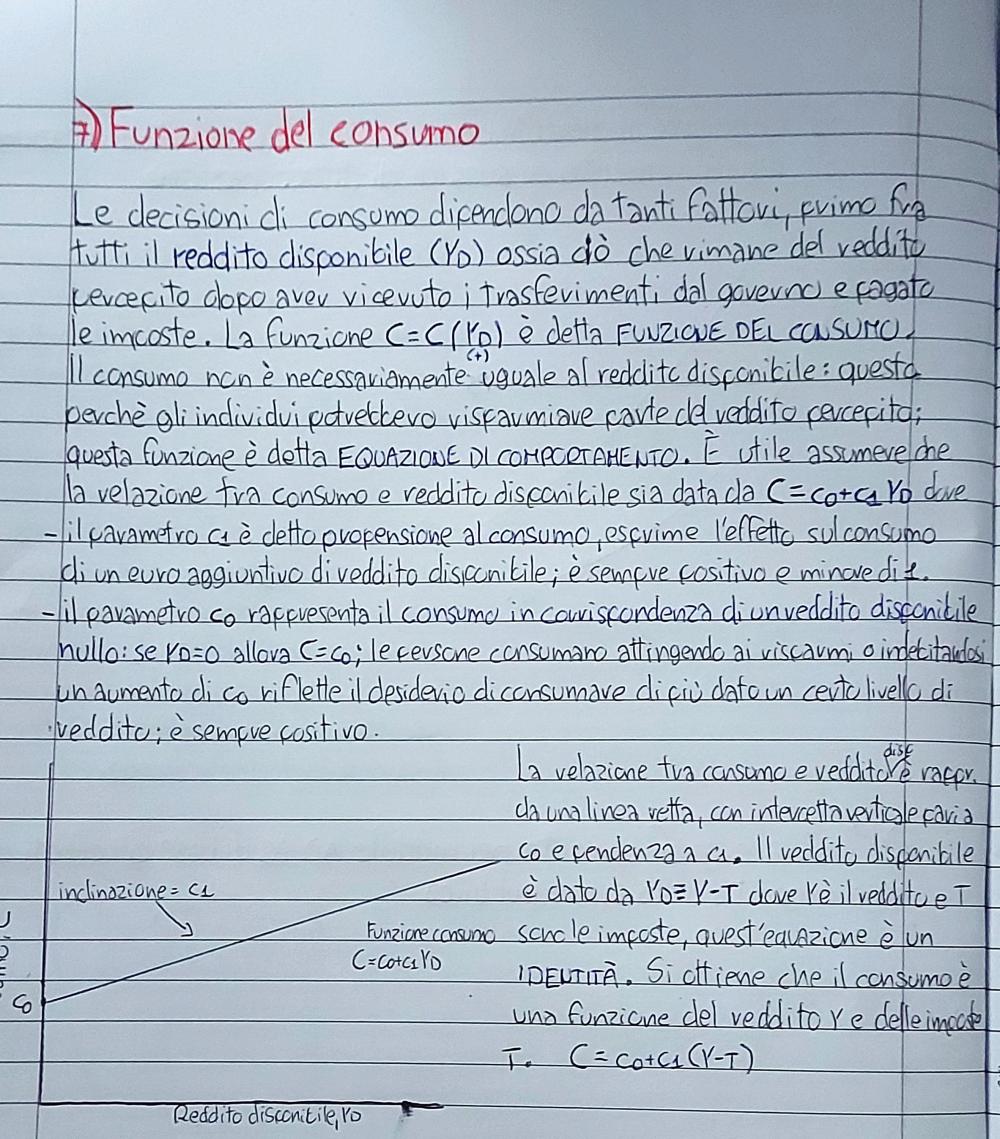 7) Funzione del consumo
Le decisioni di consumo dipendono da tanti fattori, primo fra
tutti il reddito disponibile (YD) ossia ciò che rimane del reddito
percepito dopo aver ricevuto i trasferimenti dal governo e pagato
le imposte. La funzione C=C(YD) è detta FUNZIONE DEL CONSUMO.
(+)
Il consumo non è necessariamente uguale al reddito disponibile: questo
perchè gli individui potrebbero risparmiare parte del reddito percepito;
questa funzione è detta EQUAZIONE DI COMPORTAMENTO. È utile assumere che
la relazione fra consumo e reddito disponibile sia data da C=c0+c1 YD dove
- il parametro c1 è detto propensione al consumo, esprime l'effetto sul consumo
di un euro aggiuntivo di reddito disponibile; è sempre positivo e minore di 1.
- il parametro c0 rappresenta il consumo in corrispondenza di un reddito disponibile
nullo: se YD=0 allora C=c0; le persone consumano attingendo ai risparmi o indebitandosi
un aumento di c0 riflette il desiderio di consumare di più dato un certo livello di
reddito; è sempre positivo.
La relazione tra consumo e reddito disp è rappr.
da una linea retta, con intercetta verticale pari a
c0 e pendenza a c1. Il reddito disponibile
è dato da YD≡Y-T dove Y è il reddito e T
sono le imposte, quest'equazione è un
IDENTITÀ. Si ottiene che il consumo è
una funzione del reddito Y e delle imposte
T. C=c0+c1(Y-T)
inclinazione = c1
Funzione consumo
C=c0+c1YD
c0
Reddito disponibile, YD